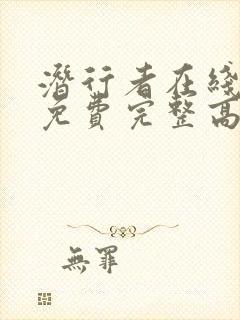 潛行者在綫
免費完整高
無罪